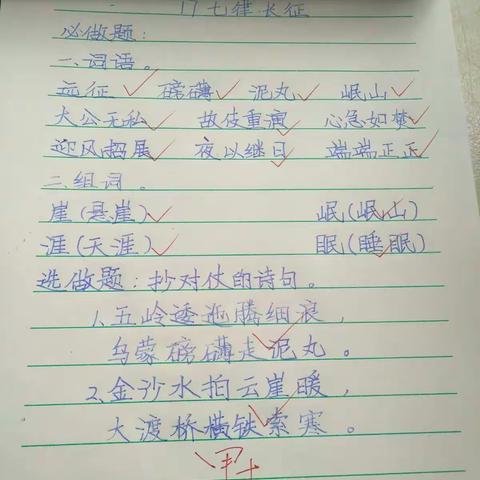 17 七律长征
必做题：
一、词语。
远征 磅礴 泥丸 岷山
大公无私 故伎重演 心急如焚
迎风招展 夜以继日 端端正正
二、组词。
崖(悬崖) 岷(岷山)
涯(天涯) 眠(睡眠)
选做题：抄对仗的诗句。
1、五岭逶迤腾细浪，
乌蒙磅礴走泥丸。
2、金沙水拍云崖暖，
大渡桥横铁索寒。
甲+